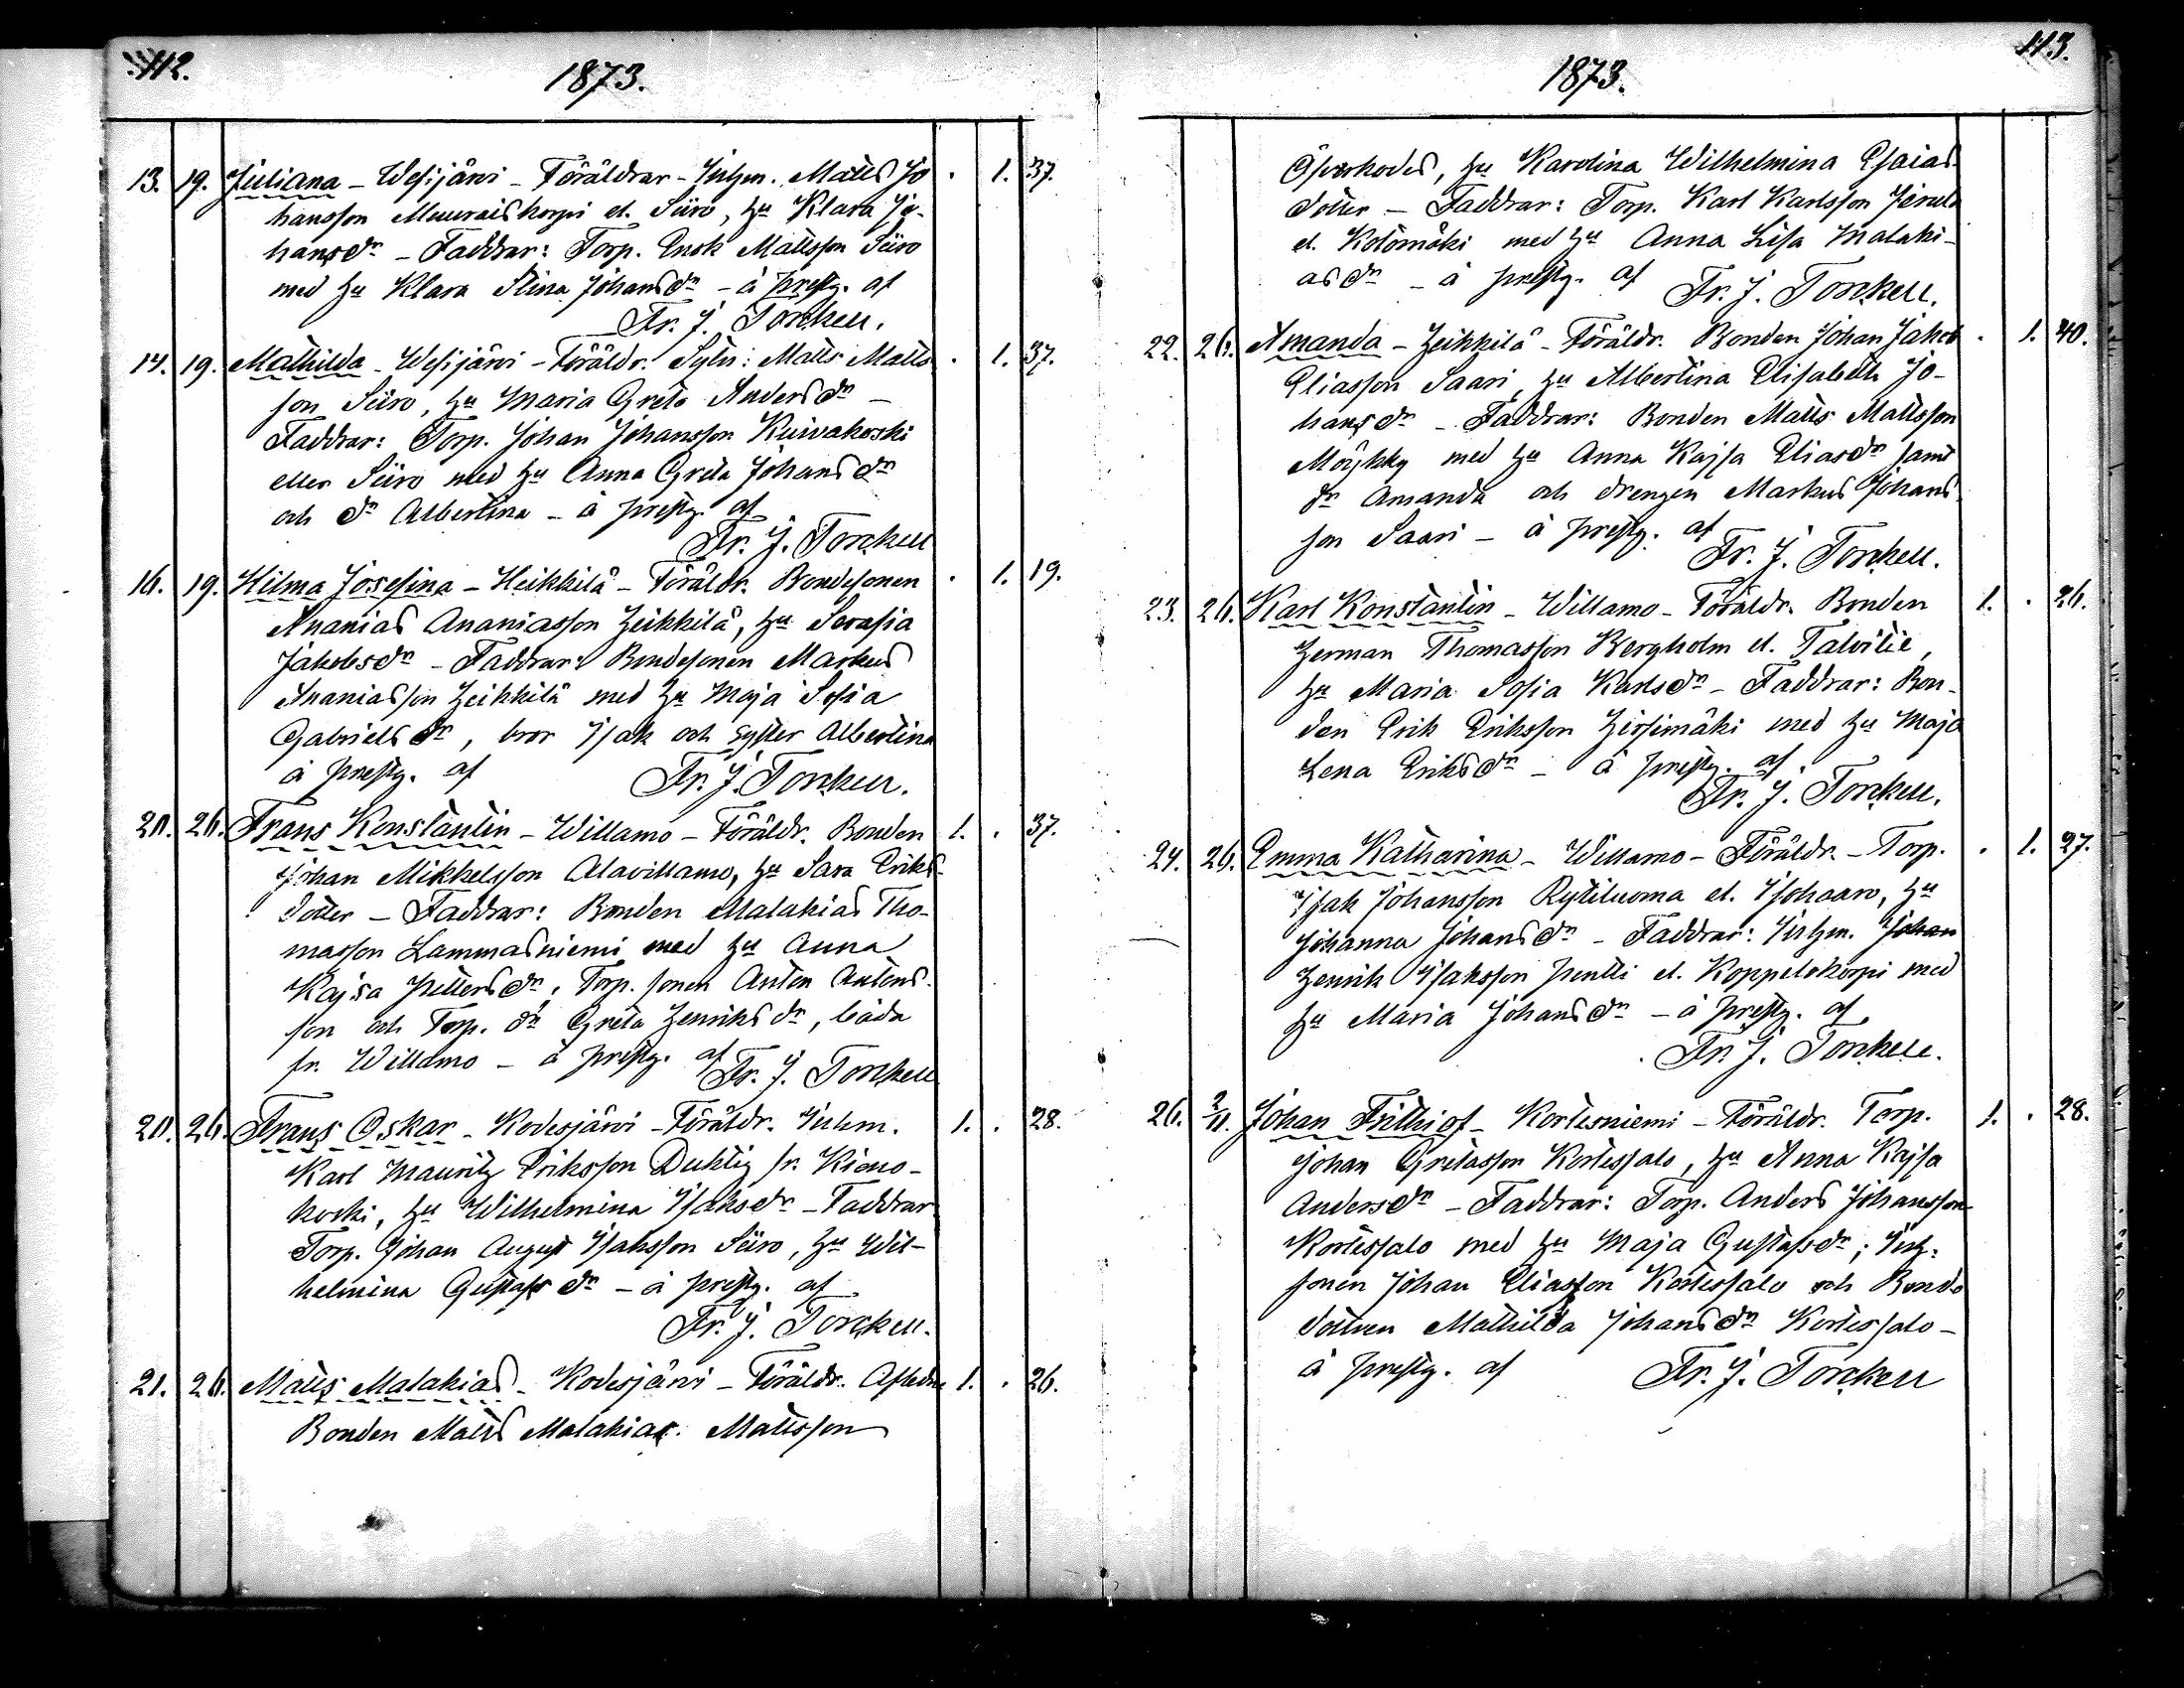 112.
1873.
13. 19. Juliana – Wesijärvi – Föräldrar – Inhm. Matts Jo- . 1. 37.
hansson Meuraiskorpi el. Siiro, hu Klara Jo-
hansdr – Faddrar: Torp. Enok Mattsson Siiro
med hu Klara Stina Johansdr – å prestg. af
Fr. J. Torckell.
14. 19. Mathilda – Wesijärvi – Föräldr. Sytn: Matts Matts- . 1. 37.
son Siiro, hu Maria Greta Andersdr –
Faddrar: Torp. Johan Johansson Kuivakoski
eller Siiro med hu Anna Greta Johansdr
och dr Albertina – å prestg. af
Fr. J. Torckell
16. 19. Hilma Josefina – Heikkilä – Föräldr. Bondesonen . 1. 19.
Ananias Ananiasson Heikkilä, hu Serafia
Jakobsdr – Faddrar: Bondesonen Markus
Ananiasson Heikkilä med hu Maja Sofia
Gabrielsdr, bror Isak och syster Albertina
å prestg. af Fr. J. Torckell.
20. 26. Frans Konstantin – Willamo – Föräldr. Bonden 1. . 37.
Johan Mikkelsson Alavillamo, hu Sara Eriks-
dotter – Faddrar: Bonden Malakias Tho-
masson Lammasniemi med hu Anna
Kajsa Pettersdr, Torp. sonen Anton Antons-
son och Torp. dr Greta Henriksdr, båda
fr. Willamo – å prestg. af Fr. J. Torckell
20. 26. Frans Oskar – Kodesjärvi – Föräldr. Inhm. 1. . 28.
Karl Mauritz Eriksson Duktig fr. Kieno-
koski, hu Wilhelmina Isaksdr – Faddrar
Torp. Johan August Isaksson Siiro, hu Wil-
helmina Gustafsdr – å prestg. af
Fr. J. Torckell.
21. 26. Matts Malakias – Kodesjärvi – Föräldr. Aflidne 1. . 26.
Bonden Matts Malakias Mattsson
113.
1873.
Öfverkodes, hu Karolina Wilhelmina Esaias-
dotter – Faddrar: Torp. Karl Karlsson
el. Kotomäki med hu Anna Lisa Malaki-
asdr – å prestg. af Fr. J. Torckell.
22. 26. Amanda – Heikkilä – Föräldr. Bonden Johan Jakob . 1. 40.
Eliasson Saari, hu Albertina Elisabeth Jo-
hansdr – Faddrar: Bonden Matts Mattsson
Möykky med hu Anna Kajsa Eliasdr samt
dr Amanda och drengen Markus Johans-
son Saari – å prestg. af
Fr. J. Torckell.
23. 26. Karl Konstantin – Willamo – Föräldr. Bonden 1. . 26.
Herman Thomasson Bergholm el. Talvitie,
hu Maria Sofia Karlsdr – Faddrar: Bon-
den Erik Eriksson Hirsimäki med hu Maja
Lena Eriksdr – å prestg. af
Fr. J. Torckell.
24. 26. Emma Katharina – Willamo – Föräldr. – Torp. . 1. 27.
Isak Johansson Rytiluoma el. Isohaaro, hu
Johanna Johansdr – Faddrar: Inhm. Johan
Henrik Isaksson Pentti el. Koppelokorpi med
hu Maria Johansdr – å prestg. af
Fr. J. Torckell.
26. 2/11. Johan Frithiof – Kortesniemi – Föräldr. Torp. 1. . 28.
Johan Gretasson Kortessalo, hu Anna Kajsa
Andersdr – Faddrar: Torp. Anders Johansson
Kortessalo med hu Maja Gustafsdr; Inh.
sonen Johan Eliasson Kortessalo och Bonde
dottren Mathilda Johansdr Kortessalo –
å prestg. af Fr. J. Torckell